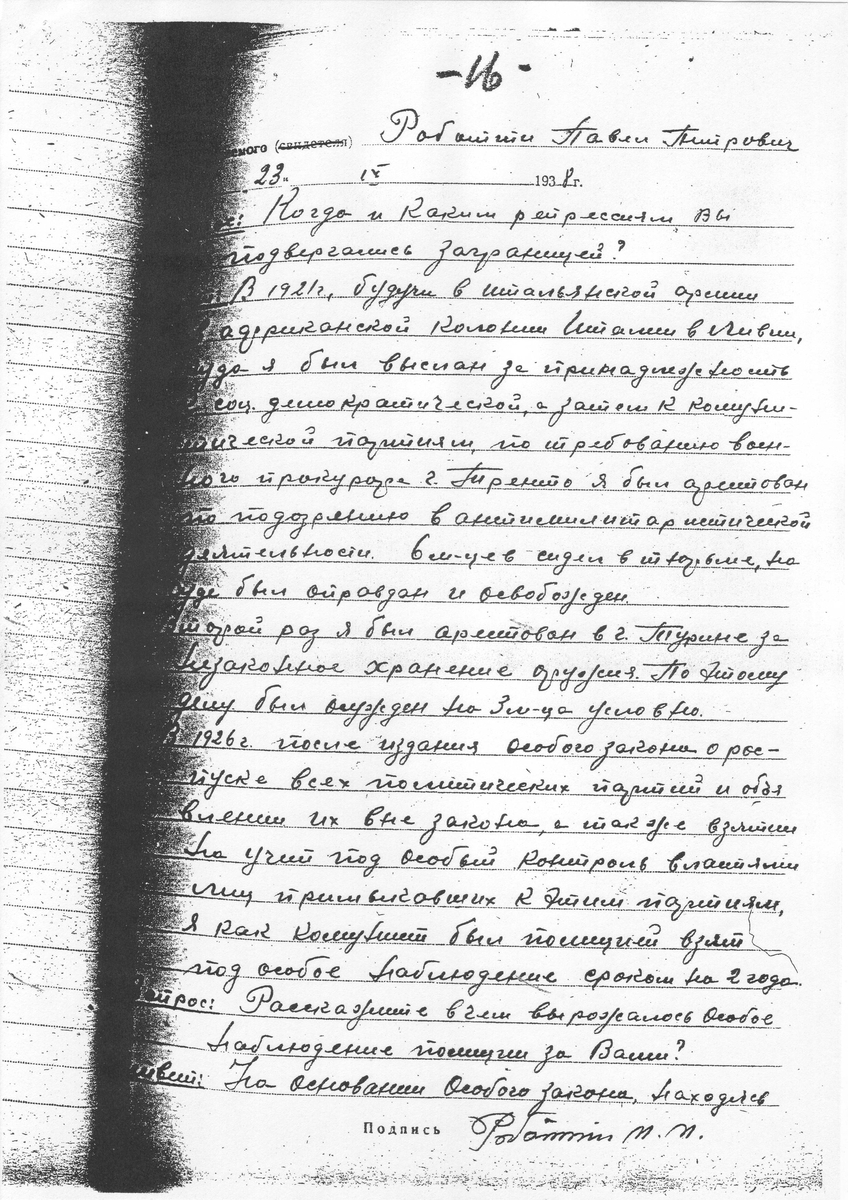 -16-
емого (свидетеля) Роботти Павел Питрович
23 " IX 1938 г.
с: Когда и каким репрессиям Вы
подвергались заграницей?
В 1921 г., будучи в итальянской армии
африканской колонии Италии в Ливии,
уда я был выслан за принадлежность
соц. демократической, а затем к комуни-
стической партиям, по требованию воен-
ного прокурора г. Тренто я был арестован
по подозрению в антимилитаристической
деятельности. 6 м-цев сидел в тюрьме, на
суде был оправдан и освобожден.
второй раз я был арестован в г. Турине за
незаконное хранение оружия. По этому
делу был осужден на 3 м-ца условно.
В 1926 г. после издания особого закона о рос-
пуске всех политических партий и объя
влении их вне закона, а также взятии
на учет под особый контроль властями
лиц примыкавших к этим партиям,
я как комунист был полицией взят
под особое наблюдение сроком на 2 года.
опрос: Расскажите в чем выражалось особое
наблюдение полиции за Вами?
ответ: На основании Особого закона, находясь
Подпись Роботти П. П.